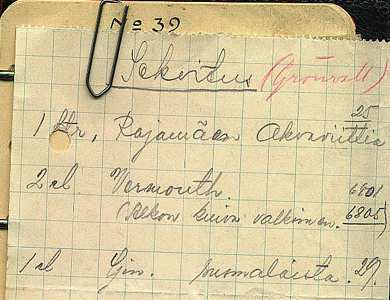 No 39
Sekoitus (Grönvall)
25
1 ltr, Rajamäen Akvaviittia
2 cl. Vermouth. 6801
(Alkon kuiva valkoinen. 6805)
1 cl Gin. suomalaista. 29.